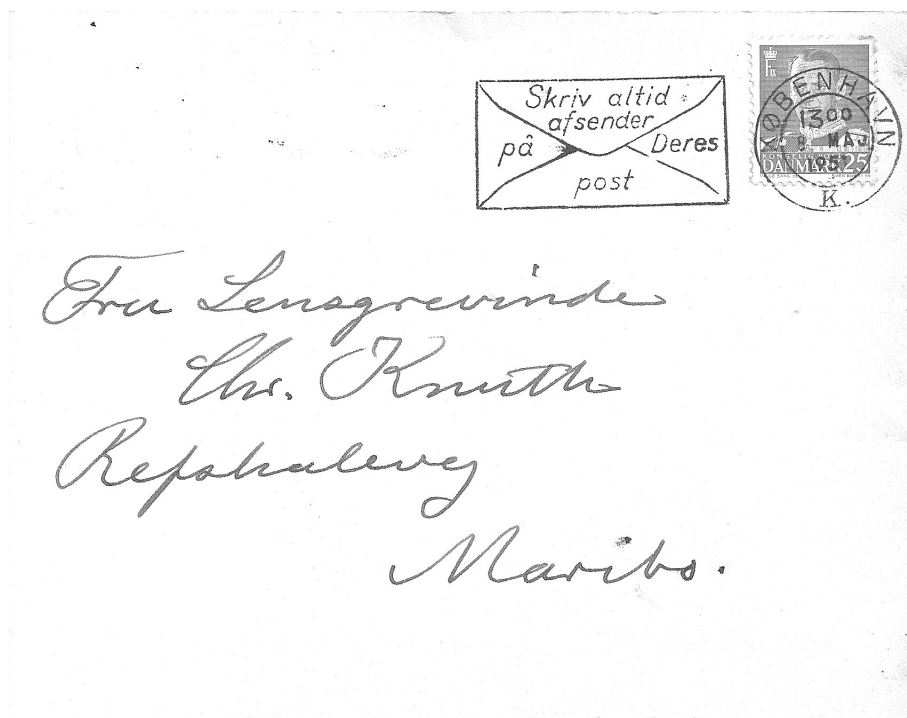 Skriv altid
afsender
på Deres
post
KØBENHAVN
1300
8 MAJ
K.
DANMARK 25
Fru Lensgrevinde
Chr. Knuth
Refshalevej
Maribo.